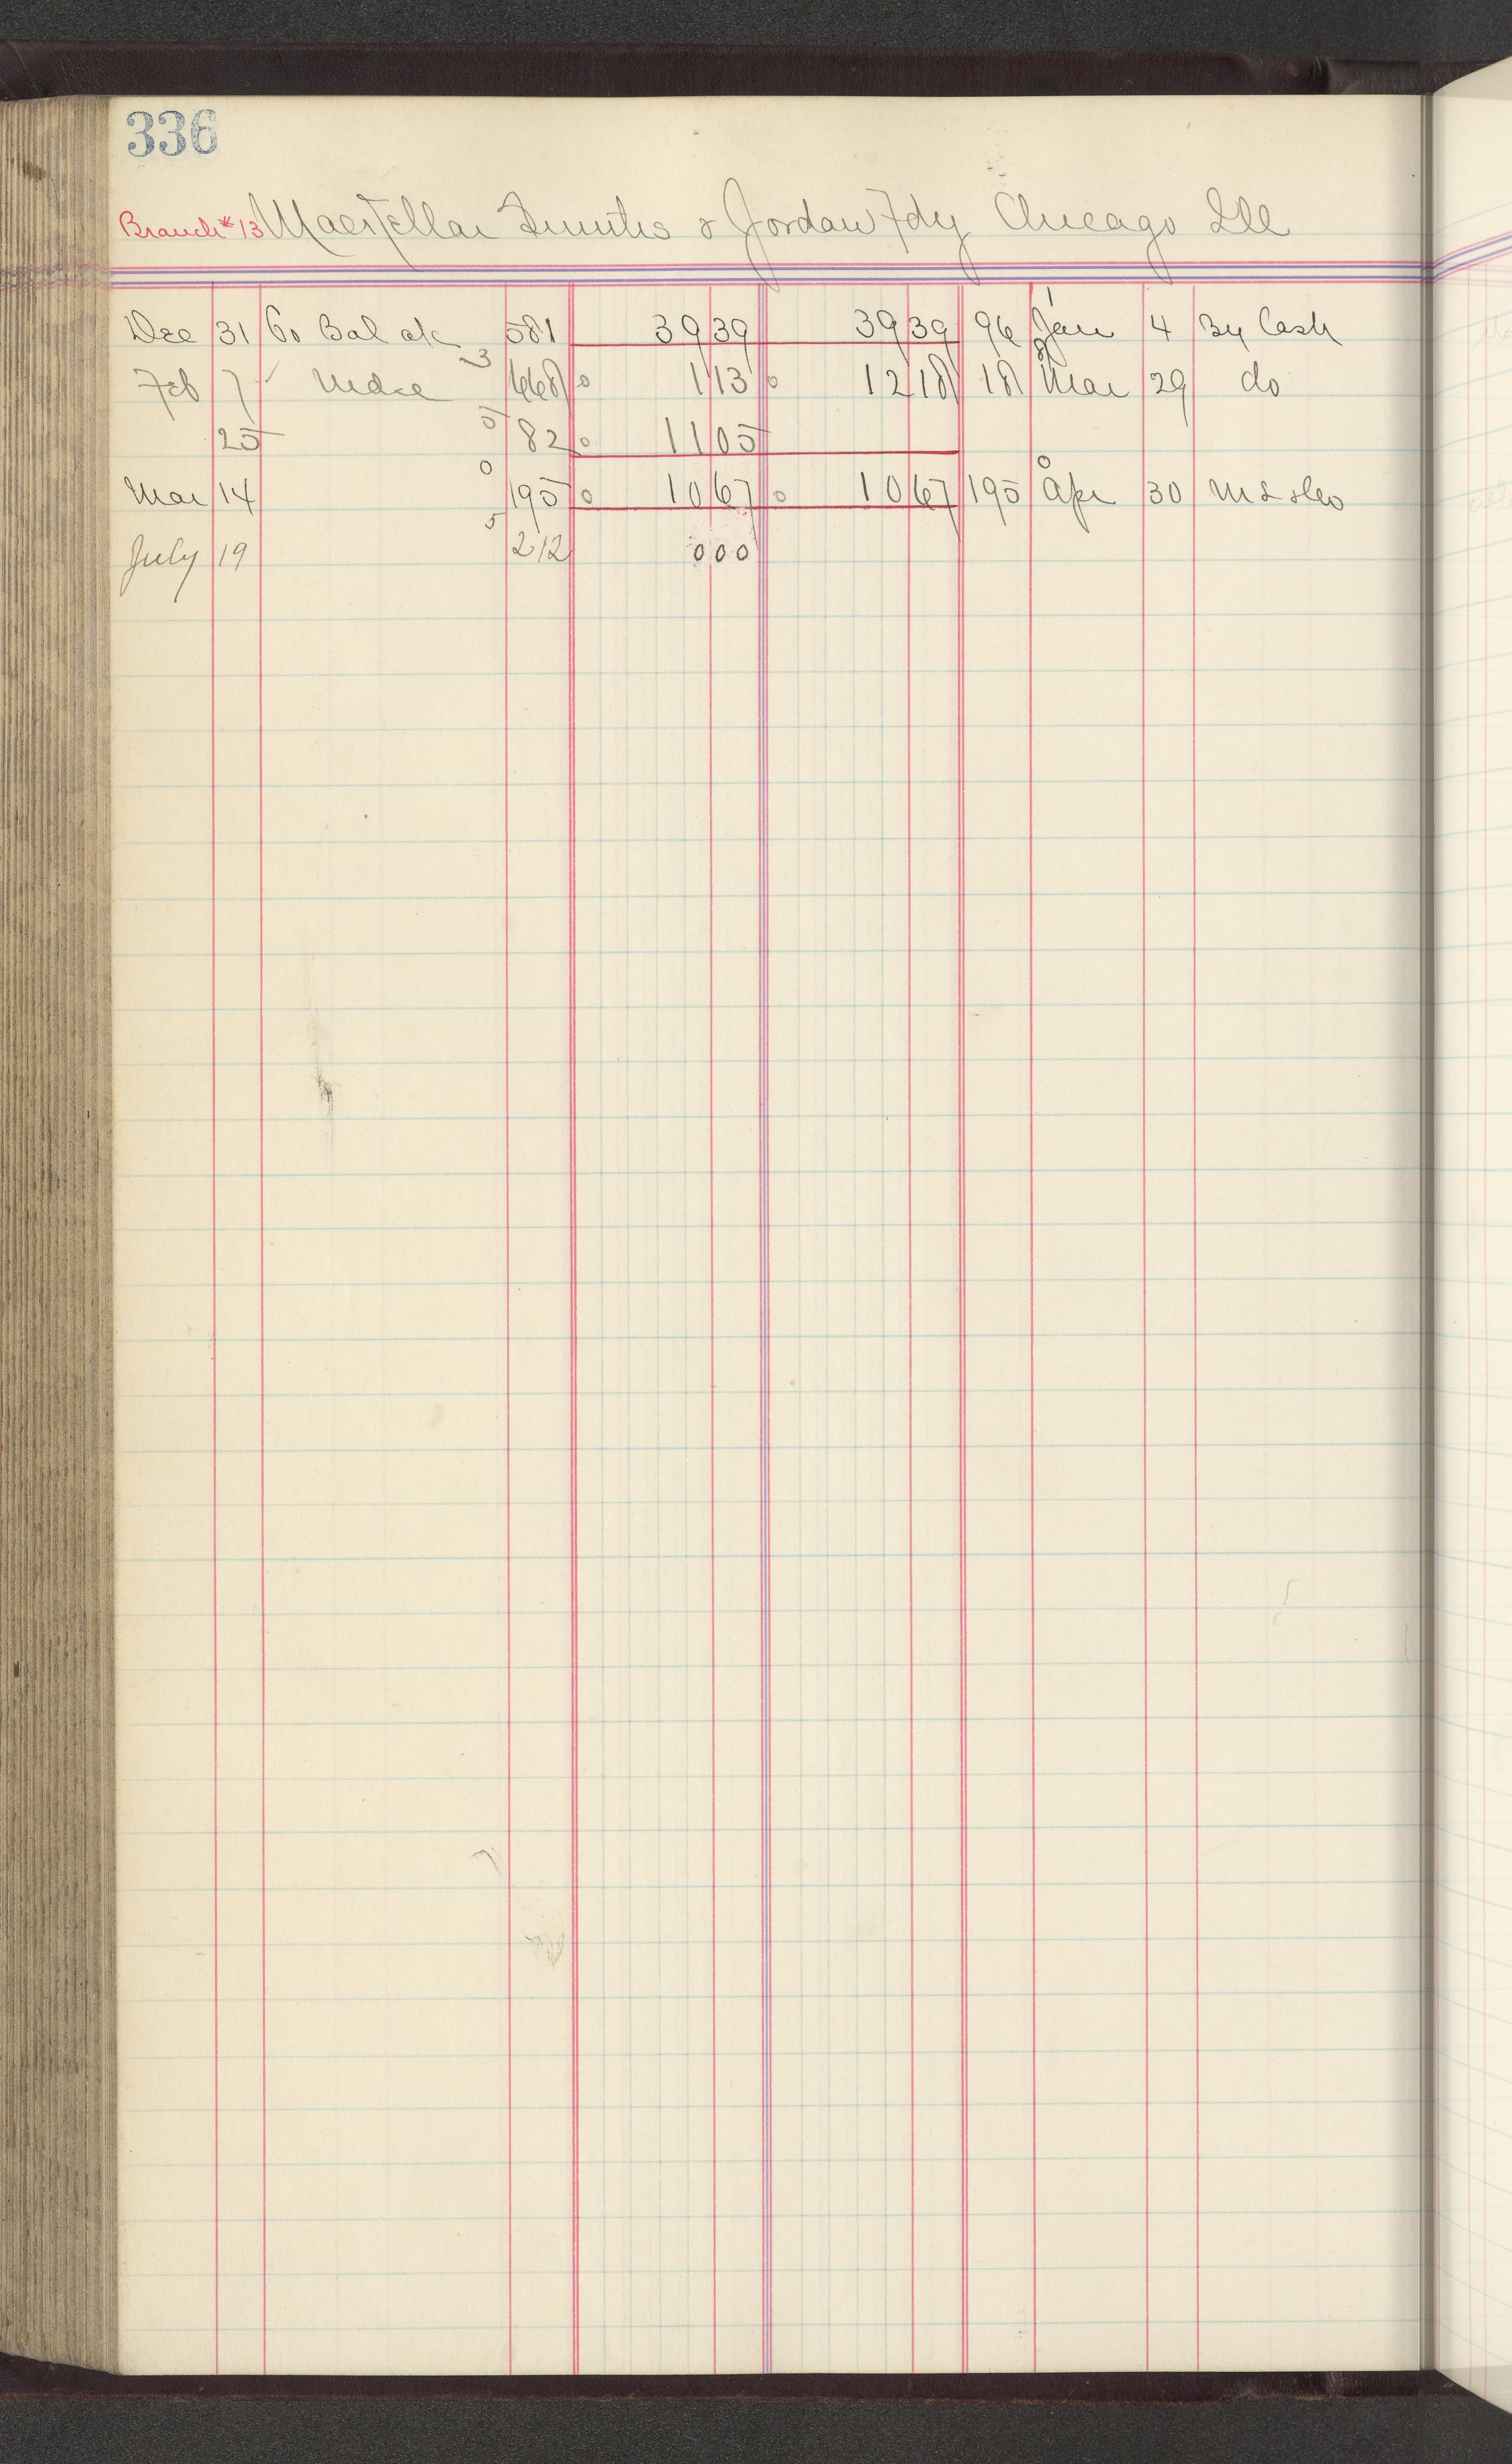 336
Branch #13 Chicago Ill
Dec 31 To Bal 581 39 39 39 39 96 Jan 4 By Cash
Feb 7 Mdse 3 668 1 13 12 18 18 8 Mar 29 do
25 5 82 11 05
Mar 14 0 195 10 67 10 67 195 0 Apr 30
July 19 5 212 0 00